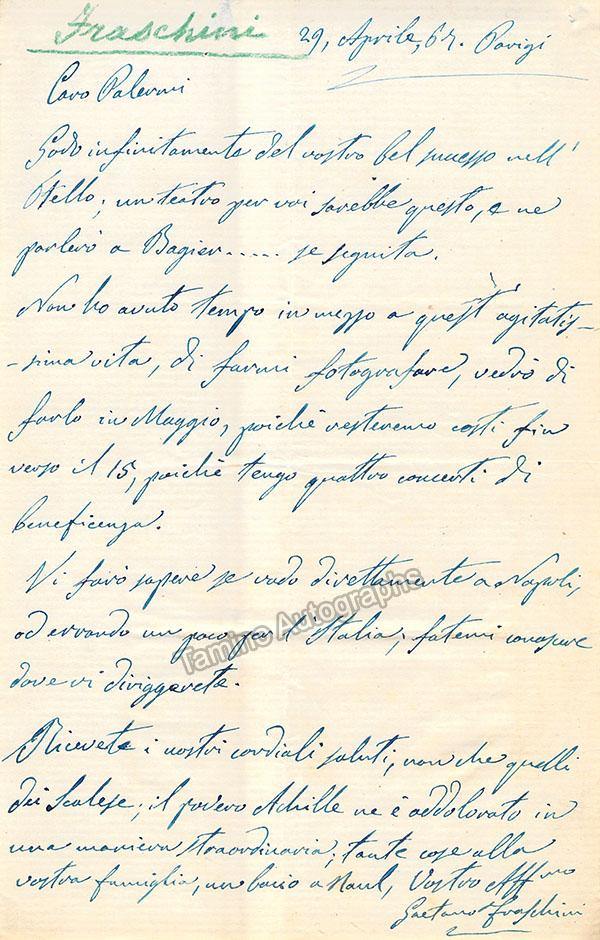 Fraschini
29, Aprile, 67. Parigi
Caro Palermi
Godo infinitamente del vostro bel successo nell'
Otello; un teatro per voi sarebbe questo, e ne
parlerò a Bagier..... se seguita.
Non ho avuto tempo in mezzo a quest' agitatis-
-sima vita, di farmi fotografare, vedrò di
farlo in Maggio, poichè resteremo costì fin
verso il 15, poichè tengo quattro concerti di
beneficenza.
Vi farò sapere se vado direttamente a Napoli,
od errando un poco per l'Italia; fatemi conoscere
dove vi diriggerete.
Tamino Autographs
Ricevete i nostri cordiali saluti, non che quelli
dei Scalese; il povero Achille ne è addolorato in
una maniera straordinaria; tante cose alla
vostra famiglia, un bacio a Vostro Affmo
Gaetano Fraschini